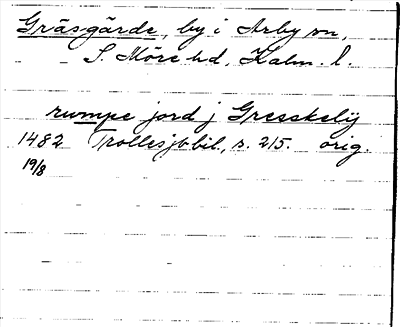 Gräsgärde, by i Arby sn,
S. Möre hd, Kalm. l.
rumpe jord j Gresskelij
1482 Trollesjbbil., s. 215. orig.
19/8